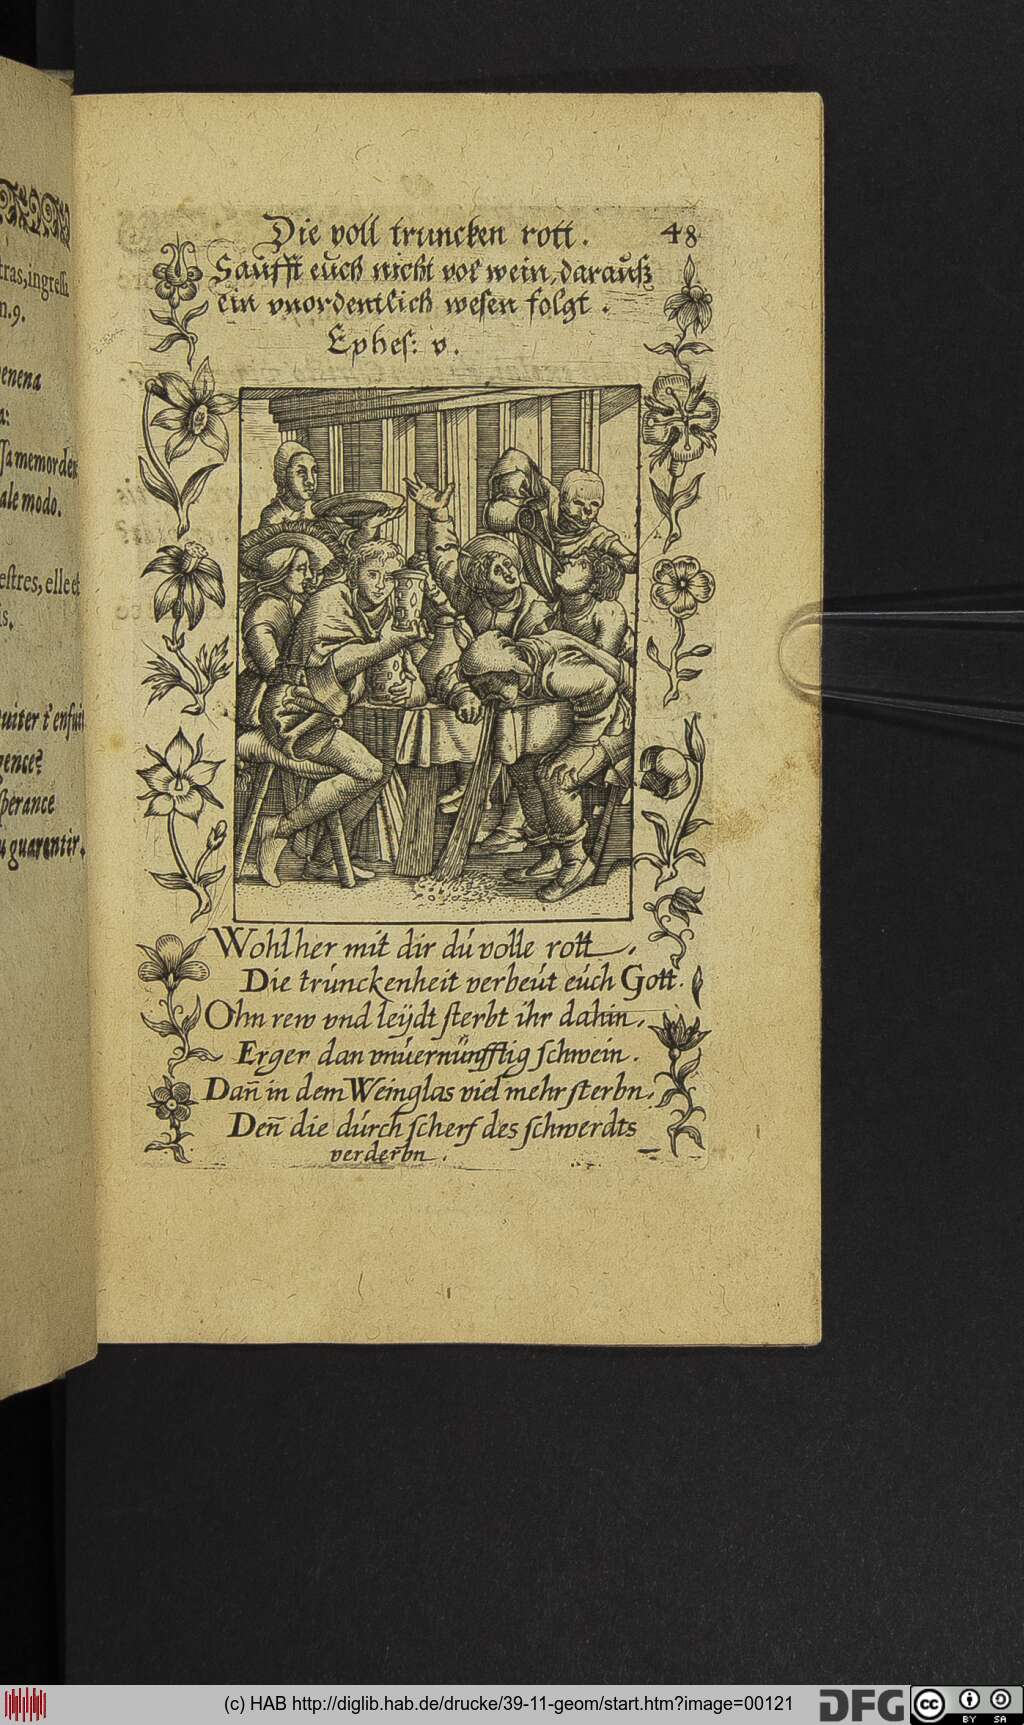 tras, ingreſſi
n.9.
enena
a:
Ja memor de
ale modo.
eſtres, elle et
is.
uiter t'enſui
gence?
ſperance
u guarentir.
Die voll truncken rott. 48
Saŭfft eŭch nicht vol wein, daraŭſz
ein vnordentlich weſen folgt.
Epheſ: v.
Wohlher mit dir dú volle rott.
Die trúnckenheit verbeút eúch Gott.
Ohn rew vnd leÿdt ſterbt ihr dahin.
Erger dan vnúernünfftig ſchwein.
Dañ in dem Weinglas viel mehr ſterbn.
Deñ die dúrch ſcherf des ſchwerdts
verderbn.
(c) HAB http://diglib.hab.de/drucke/39-11-geom/start.htm?image=00121
DFG
cc
BY SA